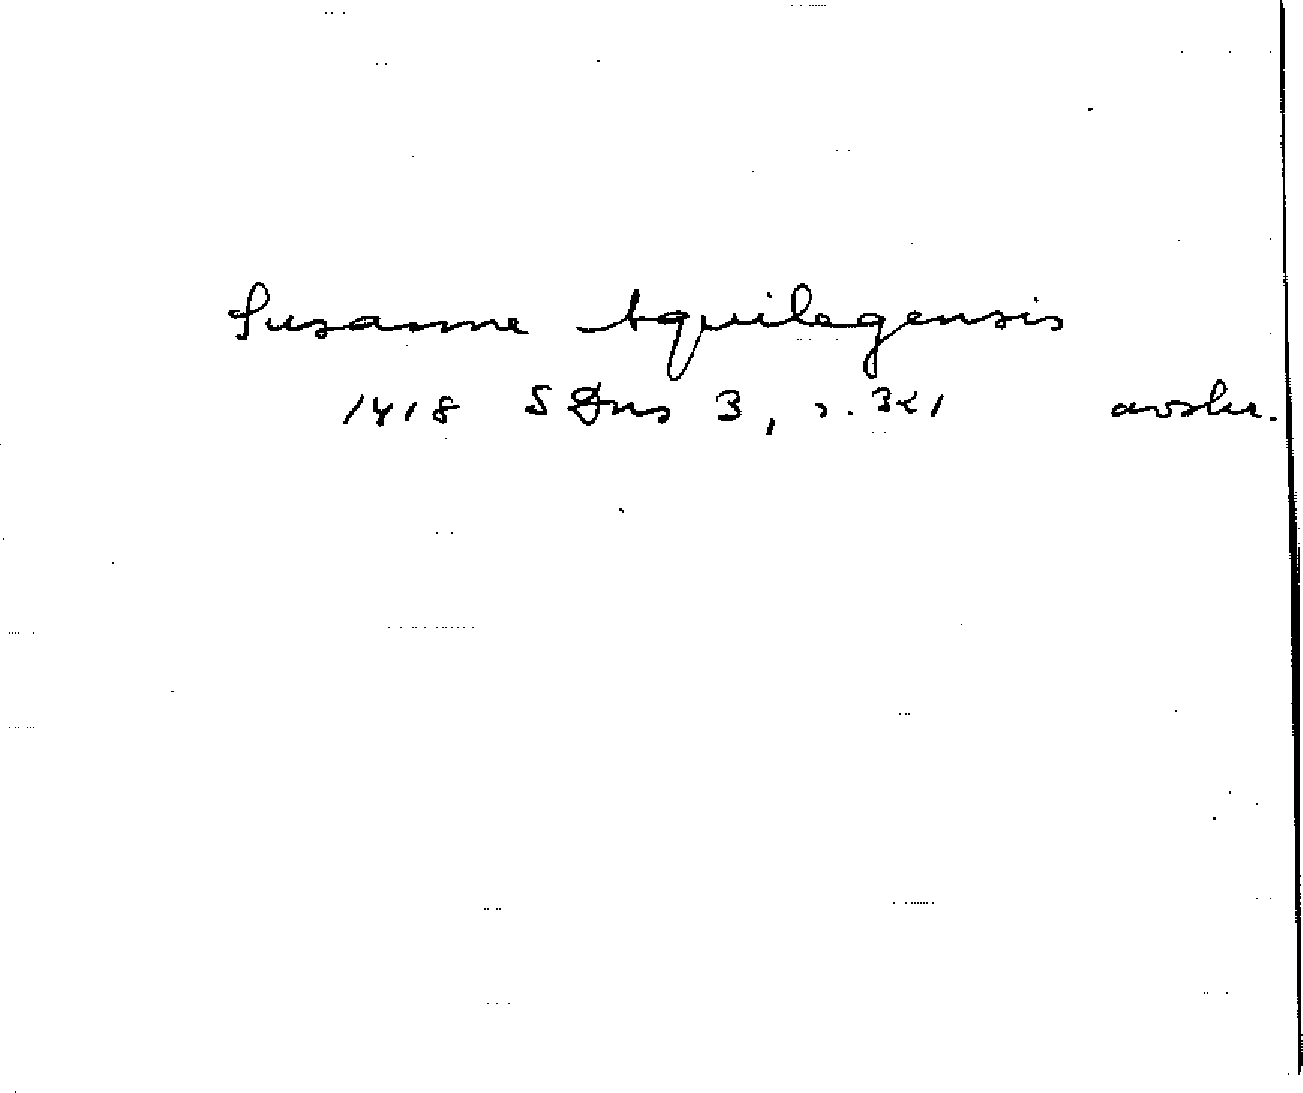 Susanne Aquilegensis
1418 SDns 3, s. 321 avskr.